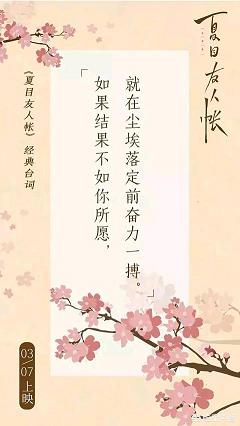 夏目友人帐
《夏目友人帐》经典台词
「如果结果不如你所愿,
就在尘埃落定前奋力一搏。」
03/07上映